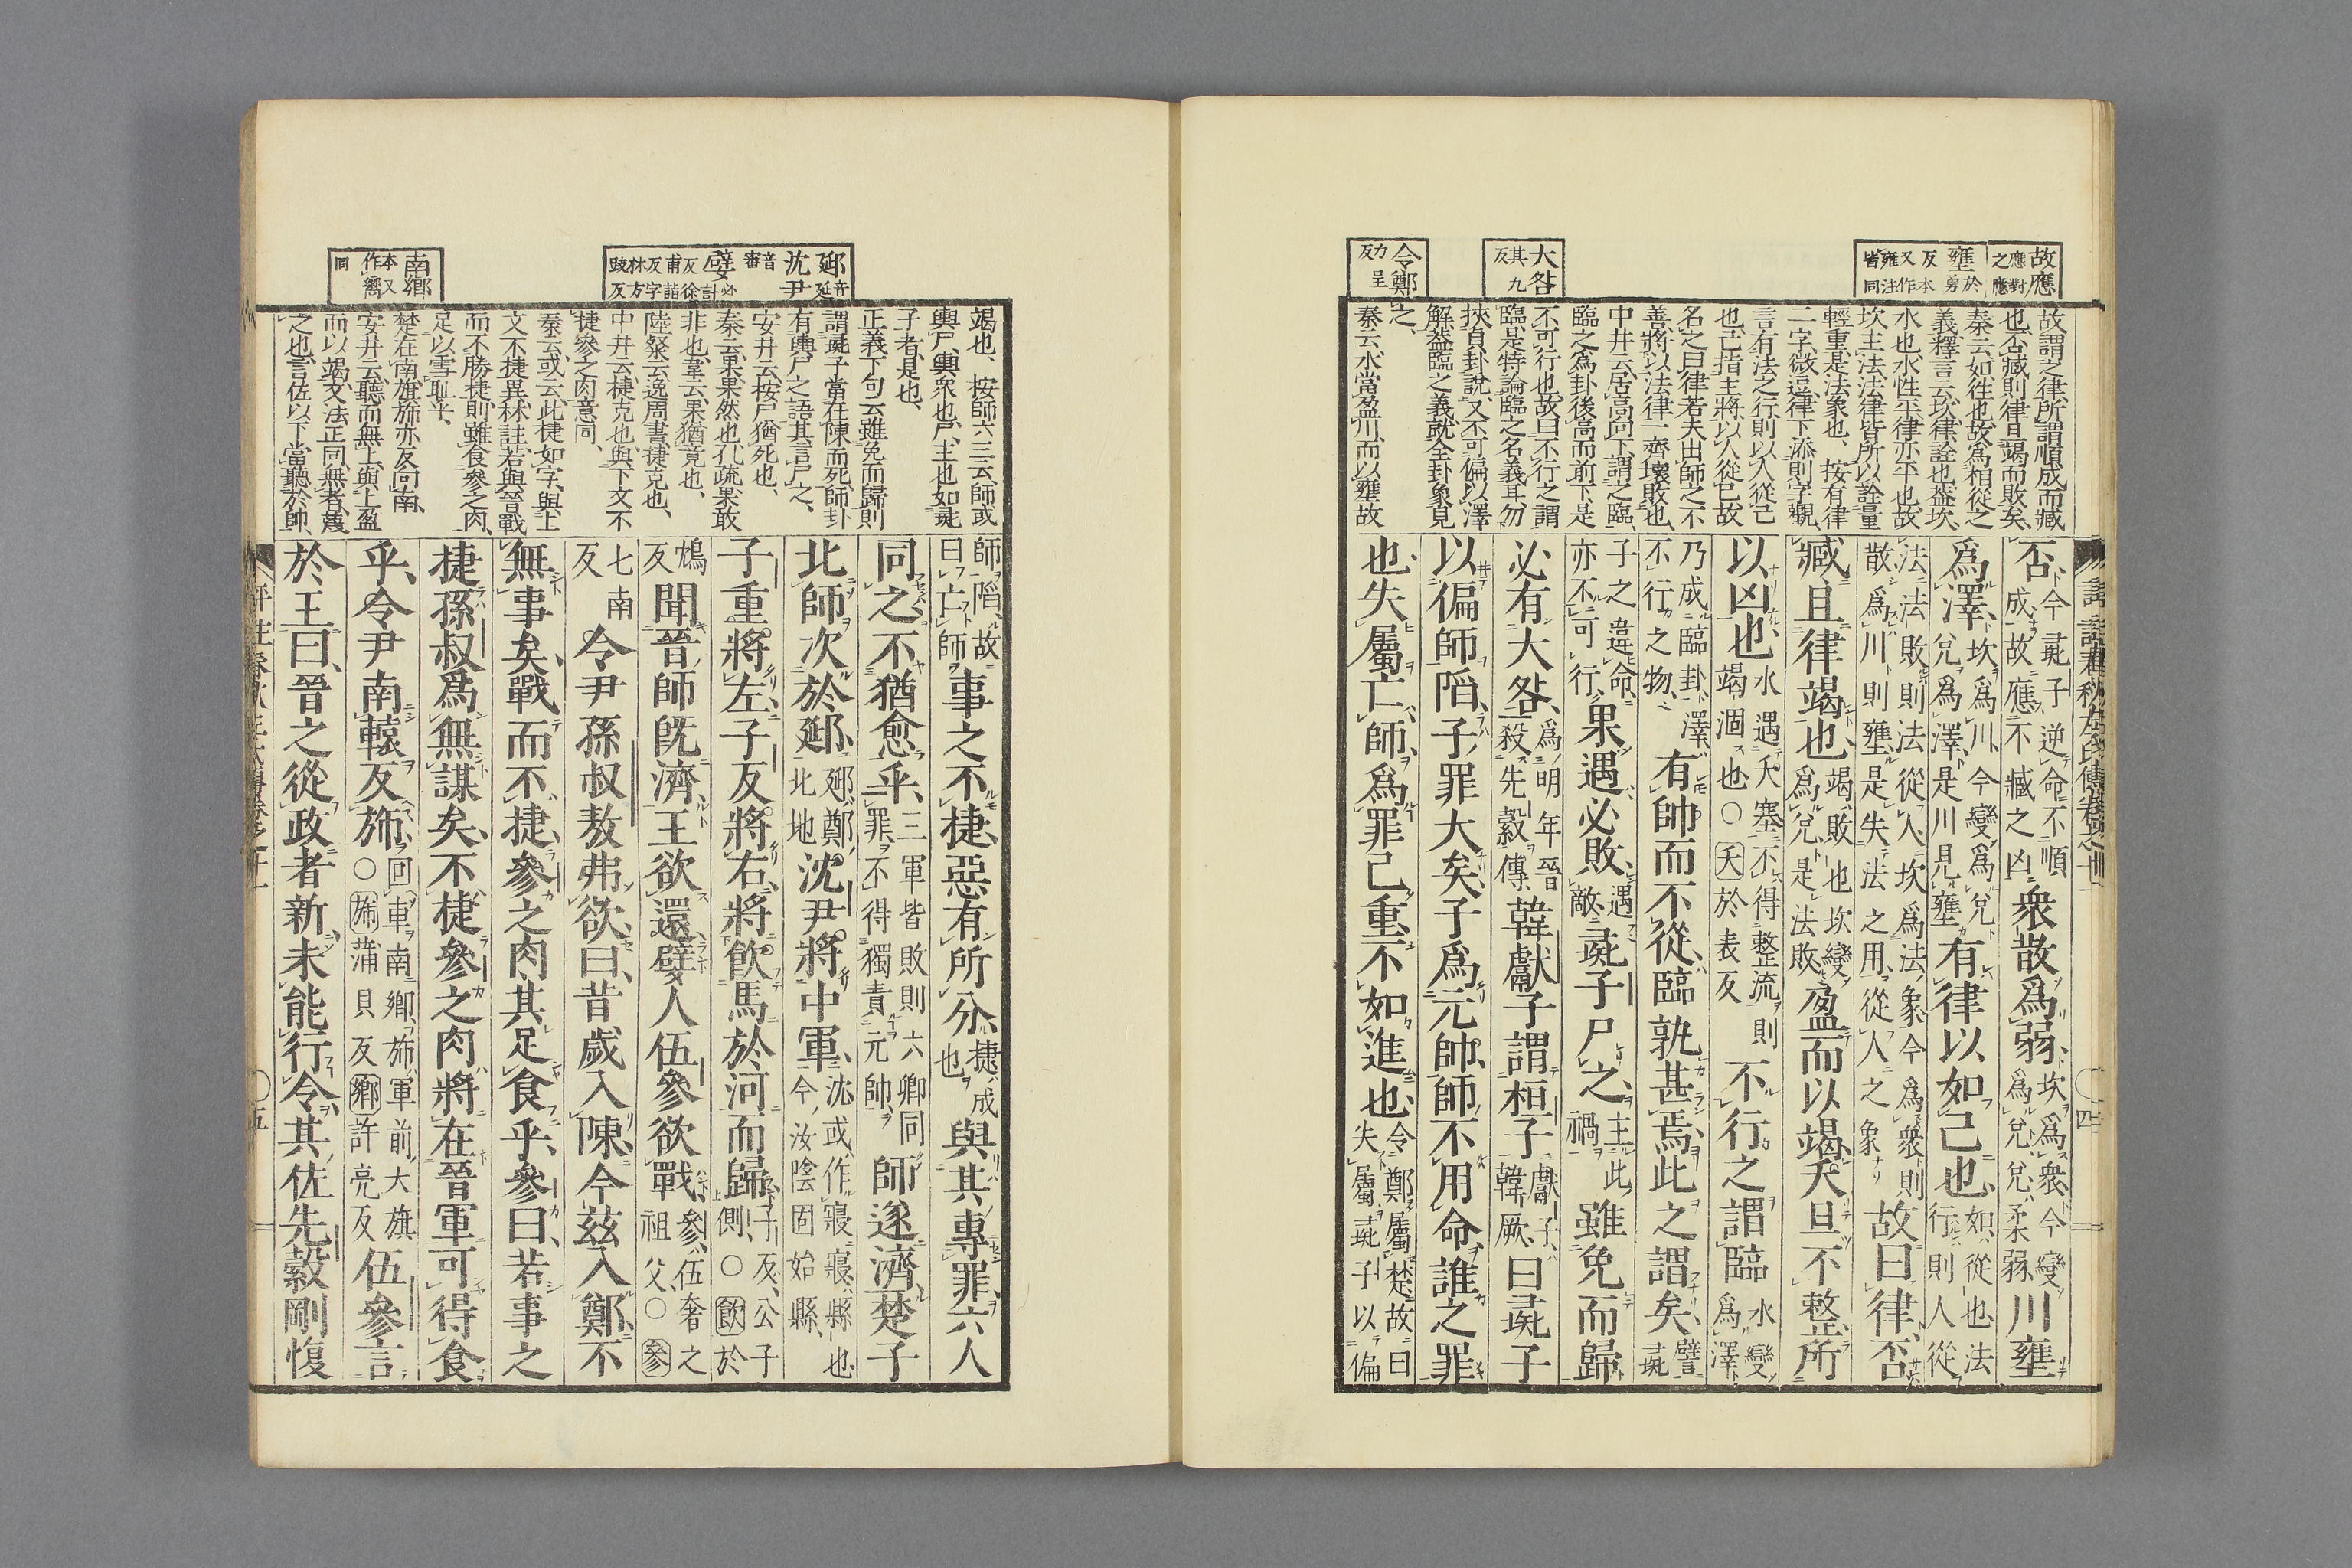 故應
應對
之應
壅
於勇
反
又作
雍注
本皆同
大咎
其九
反
令鄭
力呈
反
故謂之律、所謂順成而臧
也、否臧則律且竭而敗矣、
秦云、如往也、故爲相從之
義、釋言云、坎律詮也、蓋坎、
水也、水性平、律亦平也、故
坎主法、法律皆所以詮量
輕重、是法象也、按有律
二字微逗、律下添則字覩、
言有法之行、則以人從己
也、己指主將、以人從己、故
名之曰律、若夫出師之不
善、將以法律一齊壞敗也、
中井云、居高向下、謂之臨、
臨之爲卦、後高而前下、是
不可行也、故曰不行之謂
臨、是特論臨之名義耳、勿
挾負卦說、又不可偏以澤
解、蓋臨之義、就全卦象見
之、
秦云、水當盈川、而以壅故
否、今彘子逆命不順成故應不臧之凶衆散爲弱、坎爲衆今變爲兌兌柔弱川壅
爲澤、坎爲川今變爲兌兌爲澤是川見壅有律以如己也、如從也法行則人從
法法敗則法從人坎爲法象今爲衆則散爲川則壅是失法之用從人之象故曰律否
臧且律竭也、竭敗也坎變爲兌是法敗盈而以竭、夭且不整、所
以凶也、水遇夭塞不得整流則竭涸也○夭於表反不行之謂臨水變爲澤
乃成臨卦澤不行之物有帥而不從臨孰甚焉此之謂矣、譬彘
子之違命亦不可行果遇必敗、遇敵彘子尸之、主此禍雖免而歸
必有大咎、爲明年晉殺先縠傳韓獻子謂桓子獻子韓厥曰彘子
以偏師陷、子罪大矣、子爲元帥、師不用命、誰之罪
也、失屬亡師、爲罪已重、不如進也、令鄭屬楚故曰失屬彘子以偏
評註春秋左氏傳卷之十一
○四
郔
音延
沈尹
音審
嬖
必計
反徐甫
詣反字
林方豉反
南鄉
本又
作嚮
同
竭也、按師六三云、師或
輿尸、輿衆也、尸、主也、如彘
子者是也、
正義、下句云雖免而歸、則
謂彘子當在陳而死、師卦
有輿尸之語、其言尸之、
安井云、按尸猶死也、
秦云、果果然也、孔疏果敢
非也、韋云、果猶竟也、
陸粲云、逸周書、捷克也、
中井云、捷克也、與下文不
捷參之肉意同、
秦云、或云此捷如字、與上
文不捷異、林註若與晉戰
而不勝捷、則雖食參之肉、
足以雪恥乎、
楚在南、旗旆亦反向南、
安井云、聽而無上、與上盈
而以竭、文法正同、無者蔑
之也、言佐以下、當聽於帥、
師陷故曰亡師事之不捷、惡有所分、捷成也與其專罪、六人
同之、不猶愈乎、三軍皆敗則六卿同罪不得獨責元帥師遂濟、楚子
北師次於郔、郔鄭北地沈尹將中軍、沈或作寢寢縣也今汝陰固始縣
子重將左、子反將右、將飮馬於河而歸、子反公子側○飮於
鴆反聞晉師旣濟、王欲還、嬖人伍參欲戰、參伍奢之祖父○參
七南反令尹孫叔敖弗欲、曰、昔歲入陳、今茲入鄭、不
無事矣、戰而不捷、參之肉其足食乎、參曰、若事之
捷、孫叔爲無謀矣、不捷、參之肉將在晉軍、可得食
乎、令尹南轅反旆、回車南鄉旆軍前大旗○旆蒲貝反鄉許亮反伍參言
於王曰、晉之從政者新、未能行令、其佐先縠剛愎
評註春秋左氏傳卷之十一
○五